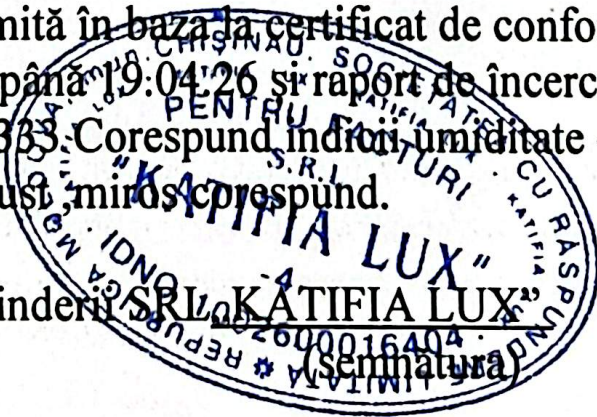 mită în baza la certificat de confo
până 19.04.26 și raport de încerc
333 Corespund indicii umiditate
ust ,miros corespund.
inderii SRL „KATIFIA LUX”
(semnătura)
REPUBLICA MOLDOVA mun. CHIȘINĂU
SOCIETATEA CU RĂSPUNDERE LIMITATĂ
PENTRU FACTURI
S.R.L.
"KATIFIA LUX"
-4
IDNO 1002600016404